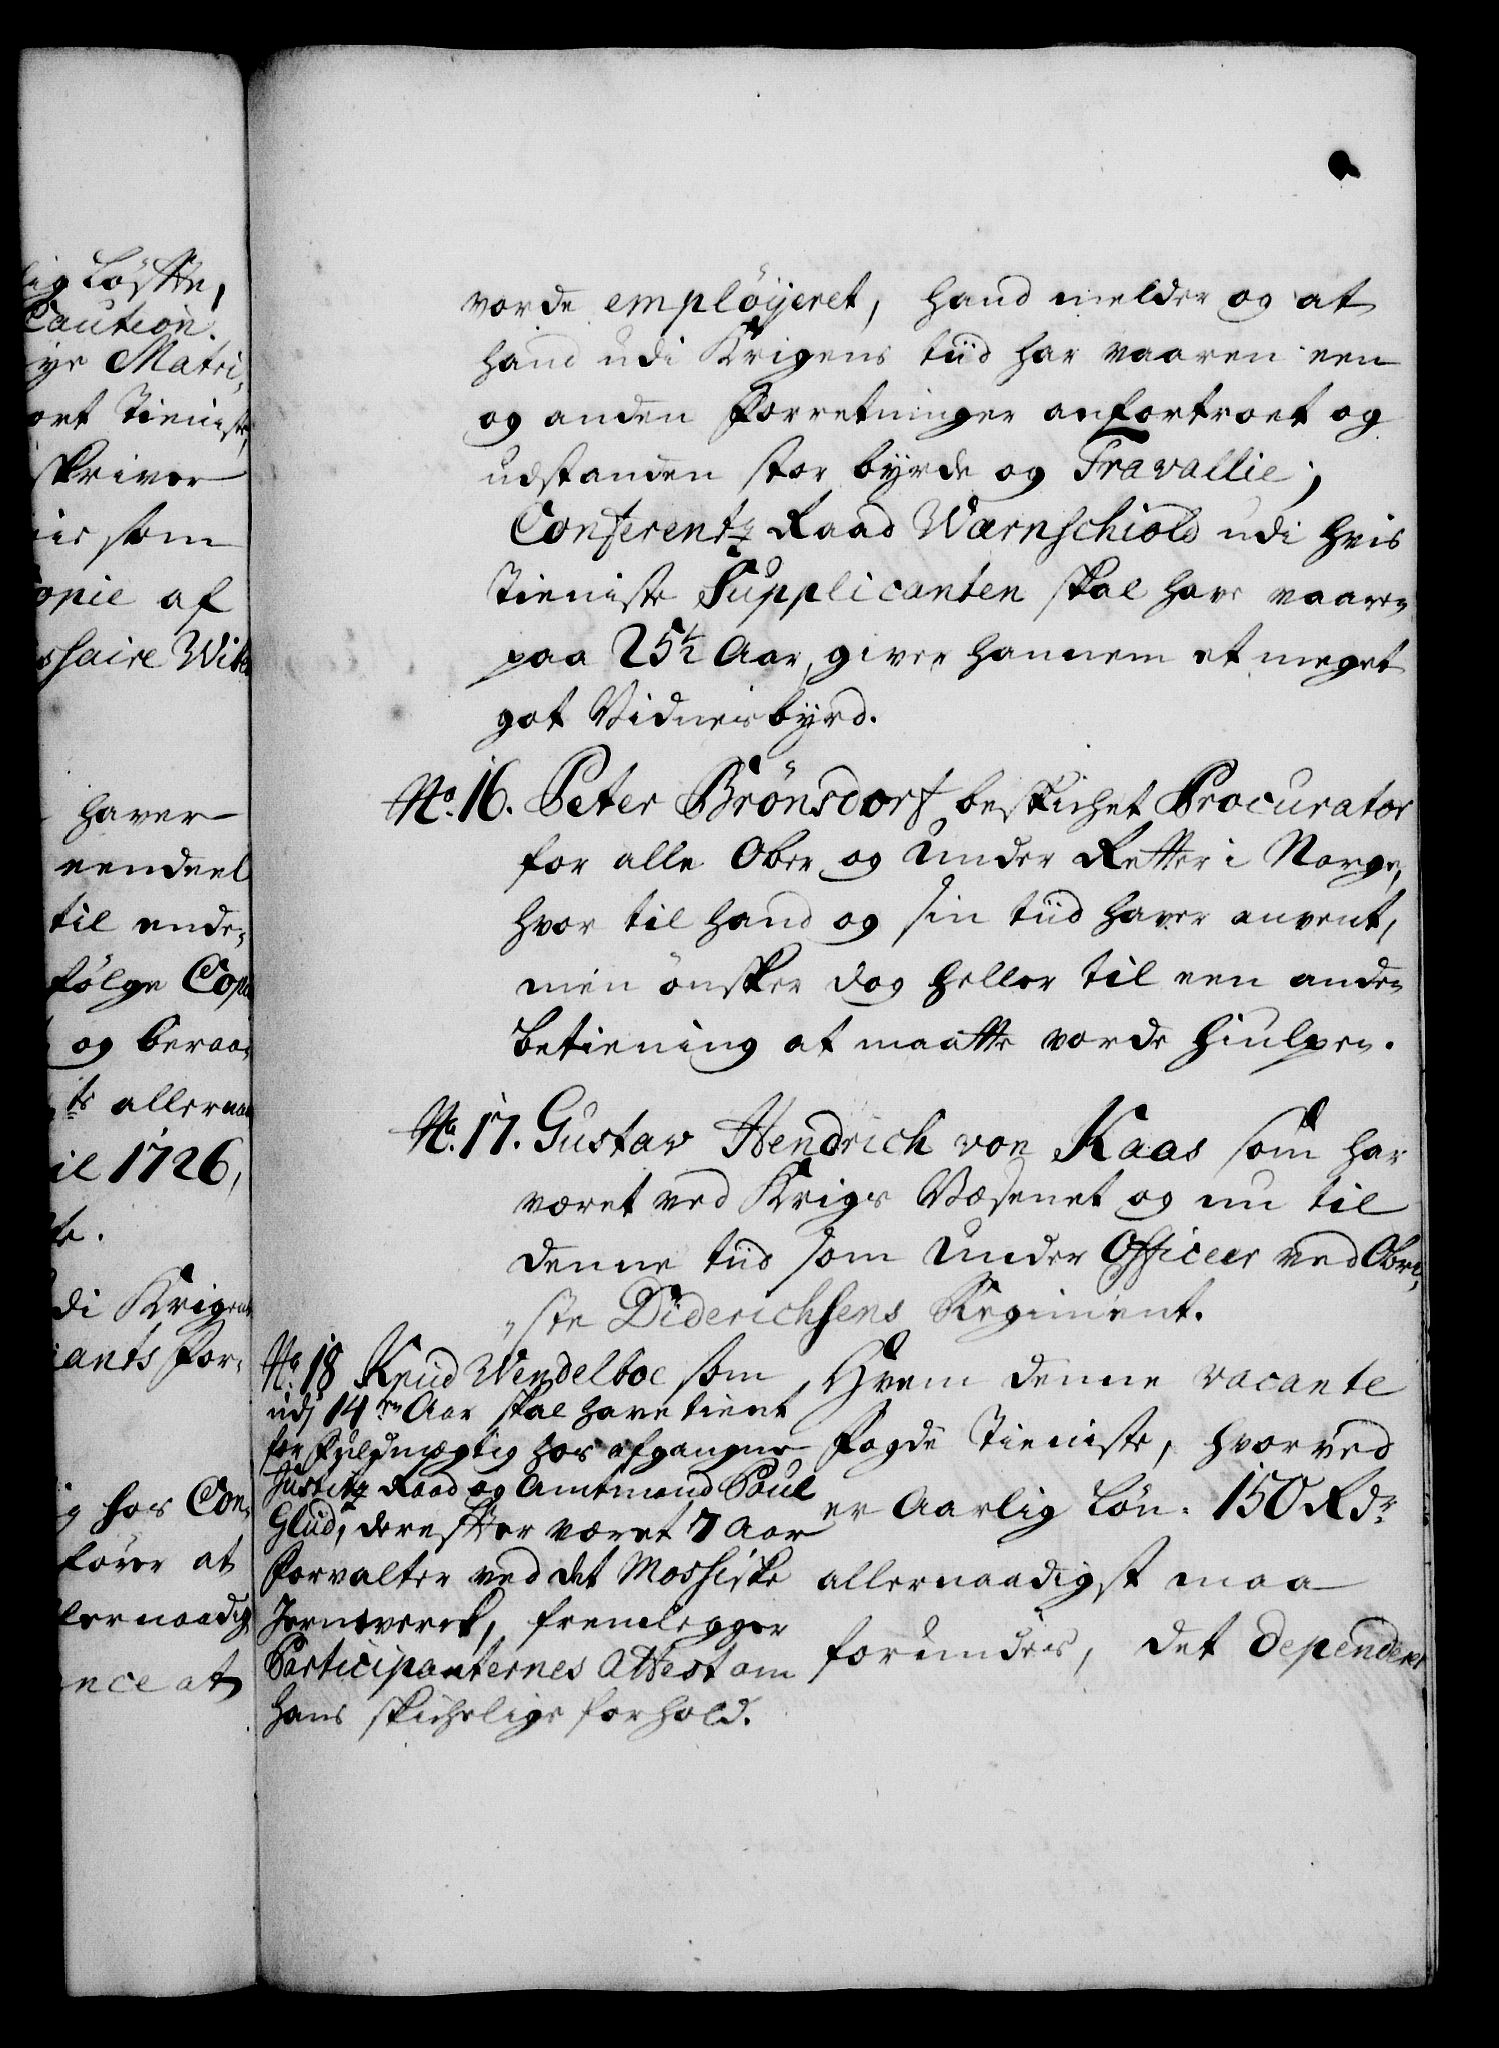 lig Løffte,
Caution.
ye Matri-
ort Tieniste,
skriver
som
opie af
ssaire Wib
haver
eendeel
til ende-
følge Cop
og beraa-
ts allernaa
il 1726,
te.
di Krigens
ants For-
g hos Con-
fører at
llernaadig
ence at
vorde emploÿeret, hand melder og at
hand udi Krigens tiid har vaaren een
og anden Forretninger anfortroet og
udstanden stor byrde og Travallie;
Conferentz Raad Wærnschiold udi hvis
Tieniste Supplicanten skal have vaaren
paa 25½ Aar, giver hannem et meget
got Vidnesbyrd.
No. 16. Peter Brönsdorf beskichet Procurator
for alle Ober og Under Retter i Norge,
hvor til hand og sin tiid haver anvent,
men ønsker dog heller til een anden
betiening at maatte vorde hiulpen.
No. 17. Gustav Hendrich von Kaas som har
været ved Krigs Væsenet og nu til
denne tiid som Under Officeer ved Obri-
ste Diderichsens Regiment.
No. 18 Knud Wendelboe som
udj 14ten Aar skal have tient
for Fuldmægtig hos afgangne
Justitz Raad og Amtmand Poul
Glud, derefter været 7 Aar
Forvalter ved det Mossiske
Jernverck, fremlegger
Participanternes Attest om
hans skichelige forhold.
Hvem denne vacante
Fogde Tieniste, hvorved
er Aarlig Løn: 150 Rdr
allernaadigst maa
forundes, det dependerer